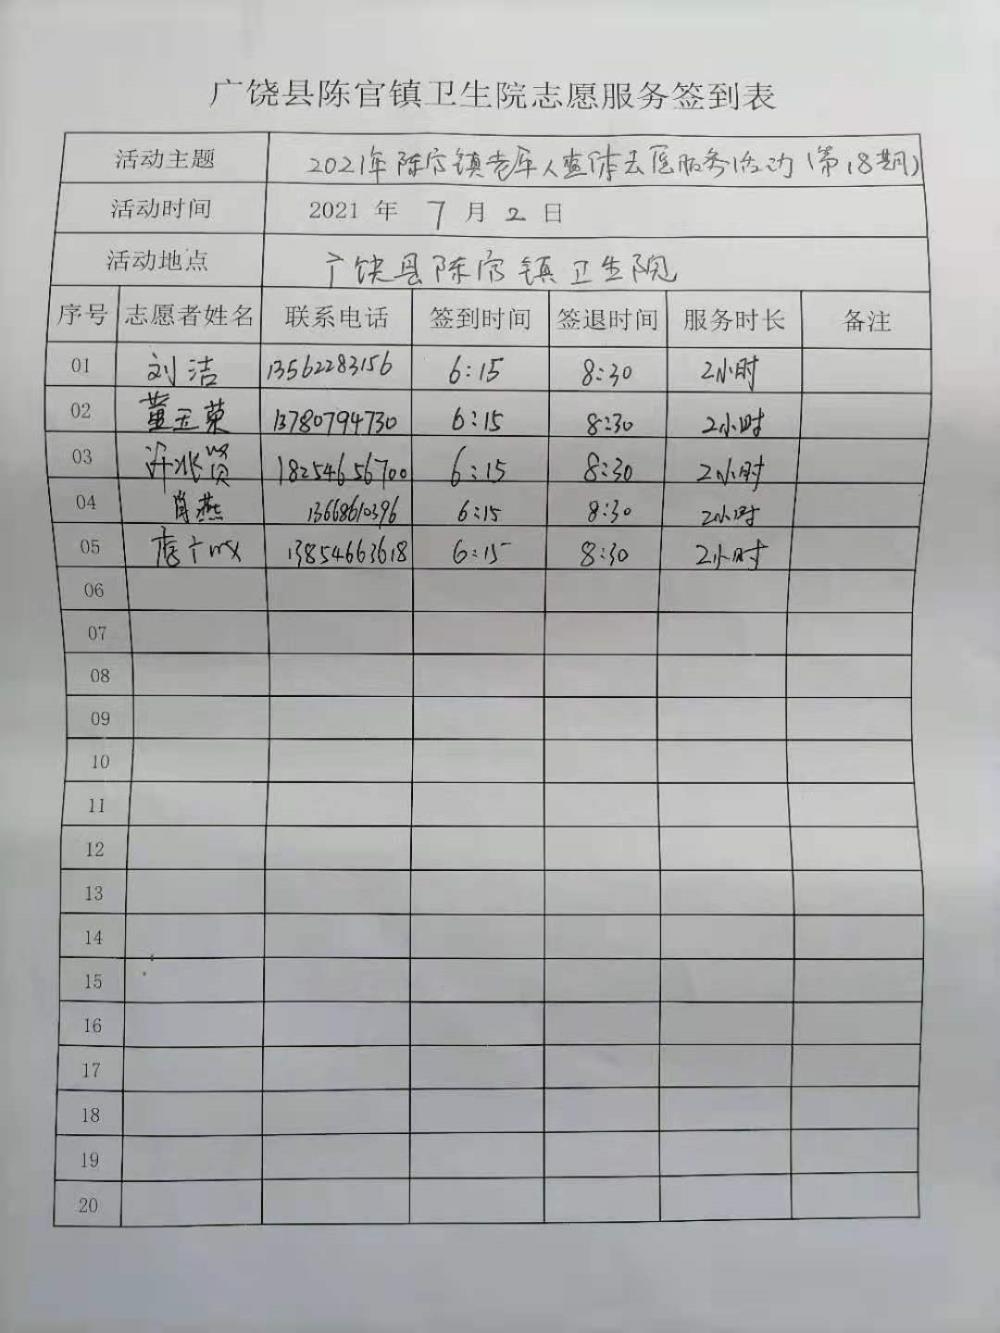 广饶县陈官镇卫生院志愿服务签到表
活动主题 2021年陈官镇老年人查体志愿服务活动(第18期)
活动时间 2021 年 7 月 2 日
活动地点 广饶县陈官镇卫生院
序号 志愿者姓名 联系电话 签到时间 签退时间 服务时长 备注
01 刘洁 13562283156 6:15 8:30 2小时
02 董玉荣 13780794730 6:15 8:30 2小时
03 许兆贤 18254656700 6:15 8:30 2小时
04 肖燕 13668610396 6:15 8:30 2小时
05 13854663618 6:15 8:30 2小时
06
07
08
09
10
11
12
13
14
15
16
17
18
19
20